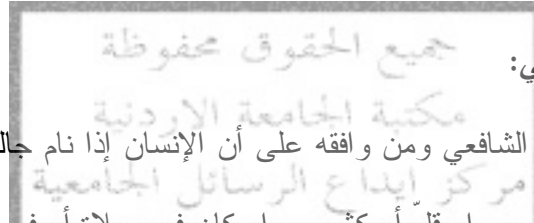 جميع الحقوق محفوظة
ي:
مكتبة الجامعة الاردنية
الشافعي ومن وافقه على أن الإنسان إذا نام جال
مركز ايداع الرسائل الجامعية